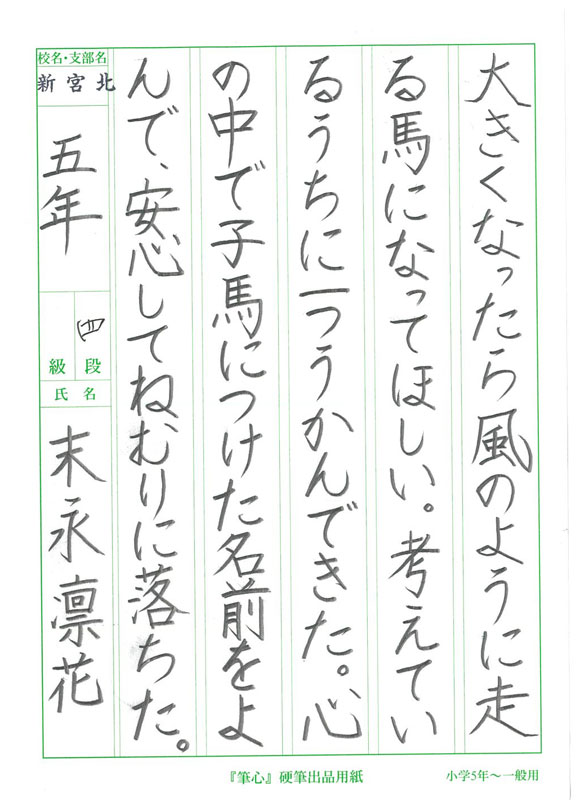 大きくなったら風のように走
る馬になってほしい。考えてい
るうちに一つうかんできた。心
の中で子馬につけた名前をよ
んで、安心してねむりに落ちた。
校名・支部名
新宮北
五年
四
段
級
氏名
末永凛花
『筆心』硬筆出品用紙
小学5年〜一般用